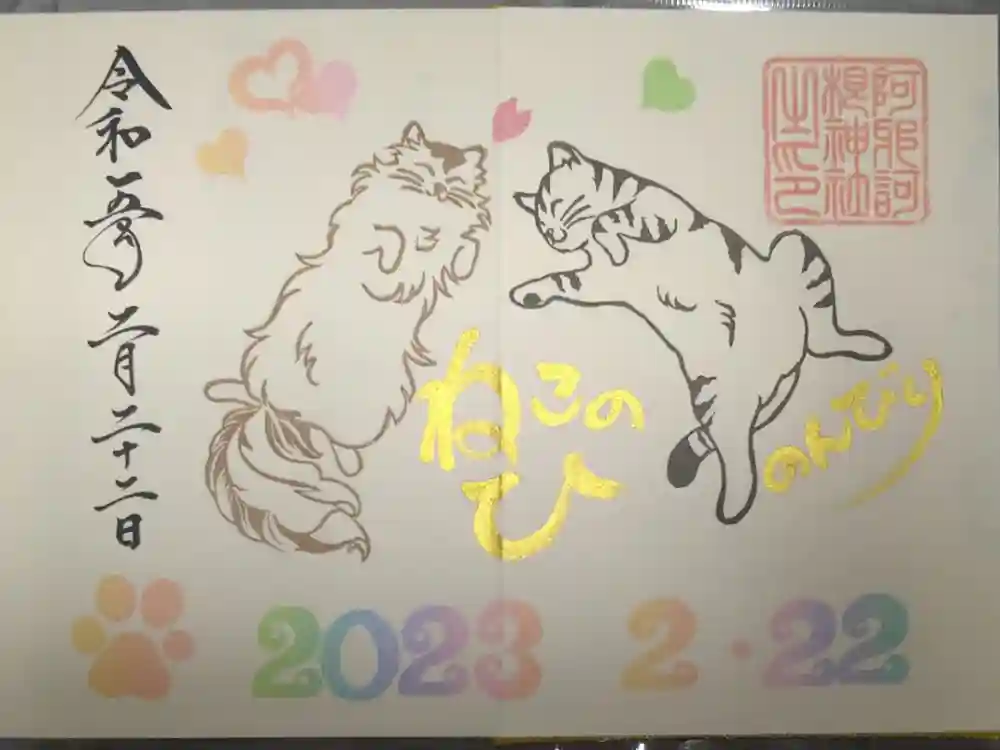 阿邪訶
根神社
之印
ねこの
ひ
のんびり
令和五年二月二十二日
2023 2・22